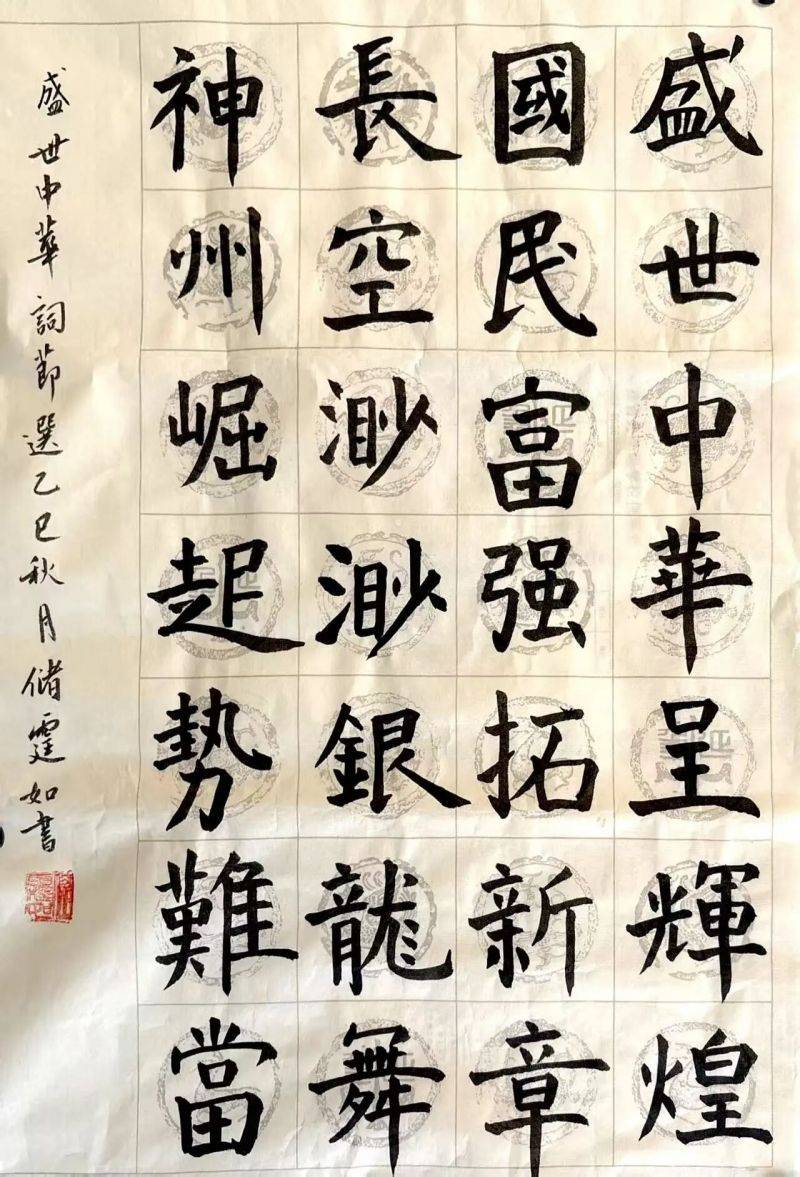 盛世中華呈輝煌
國民富强拓新章
長空渺渺銀龍舞
神州崛起勢難當
盛世中華詞節選乙巳秋月储霆如書